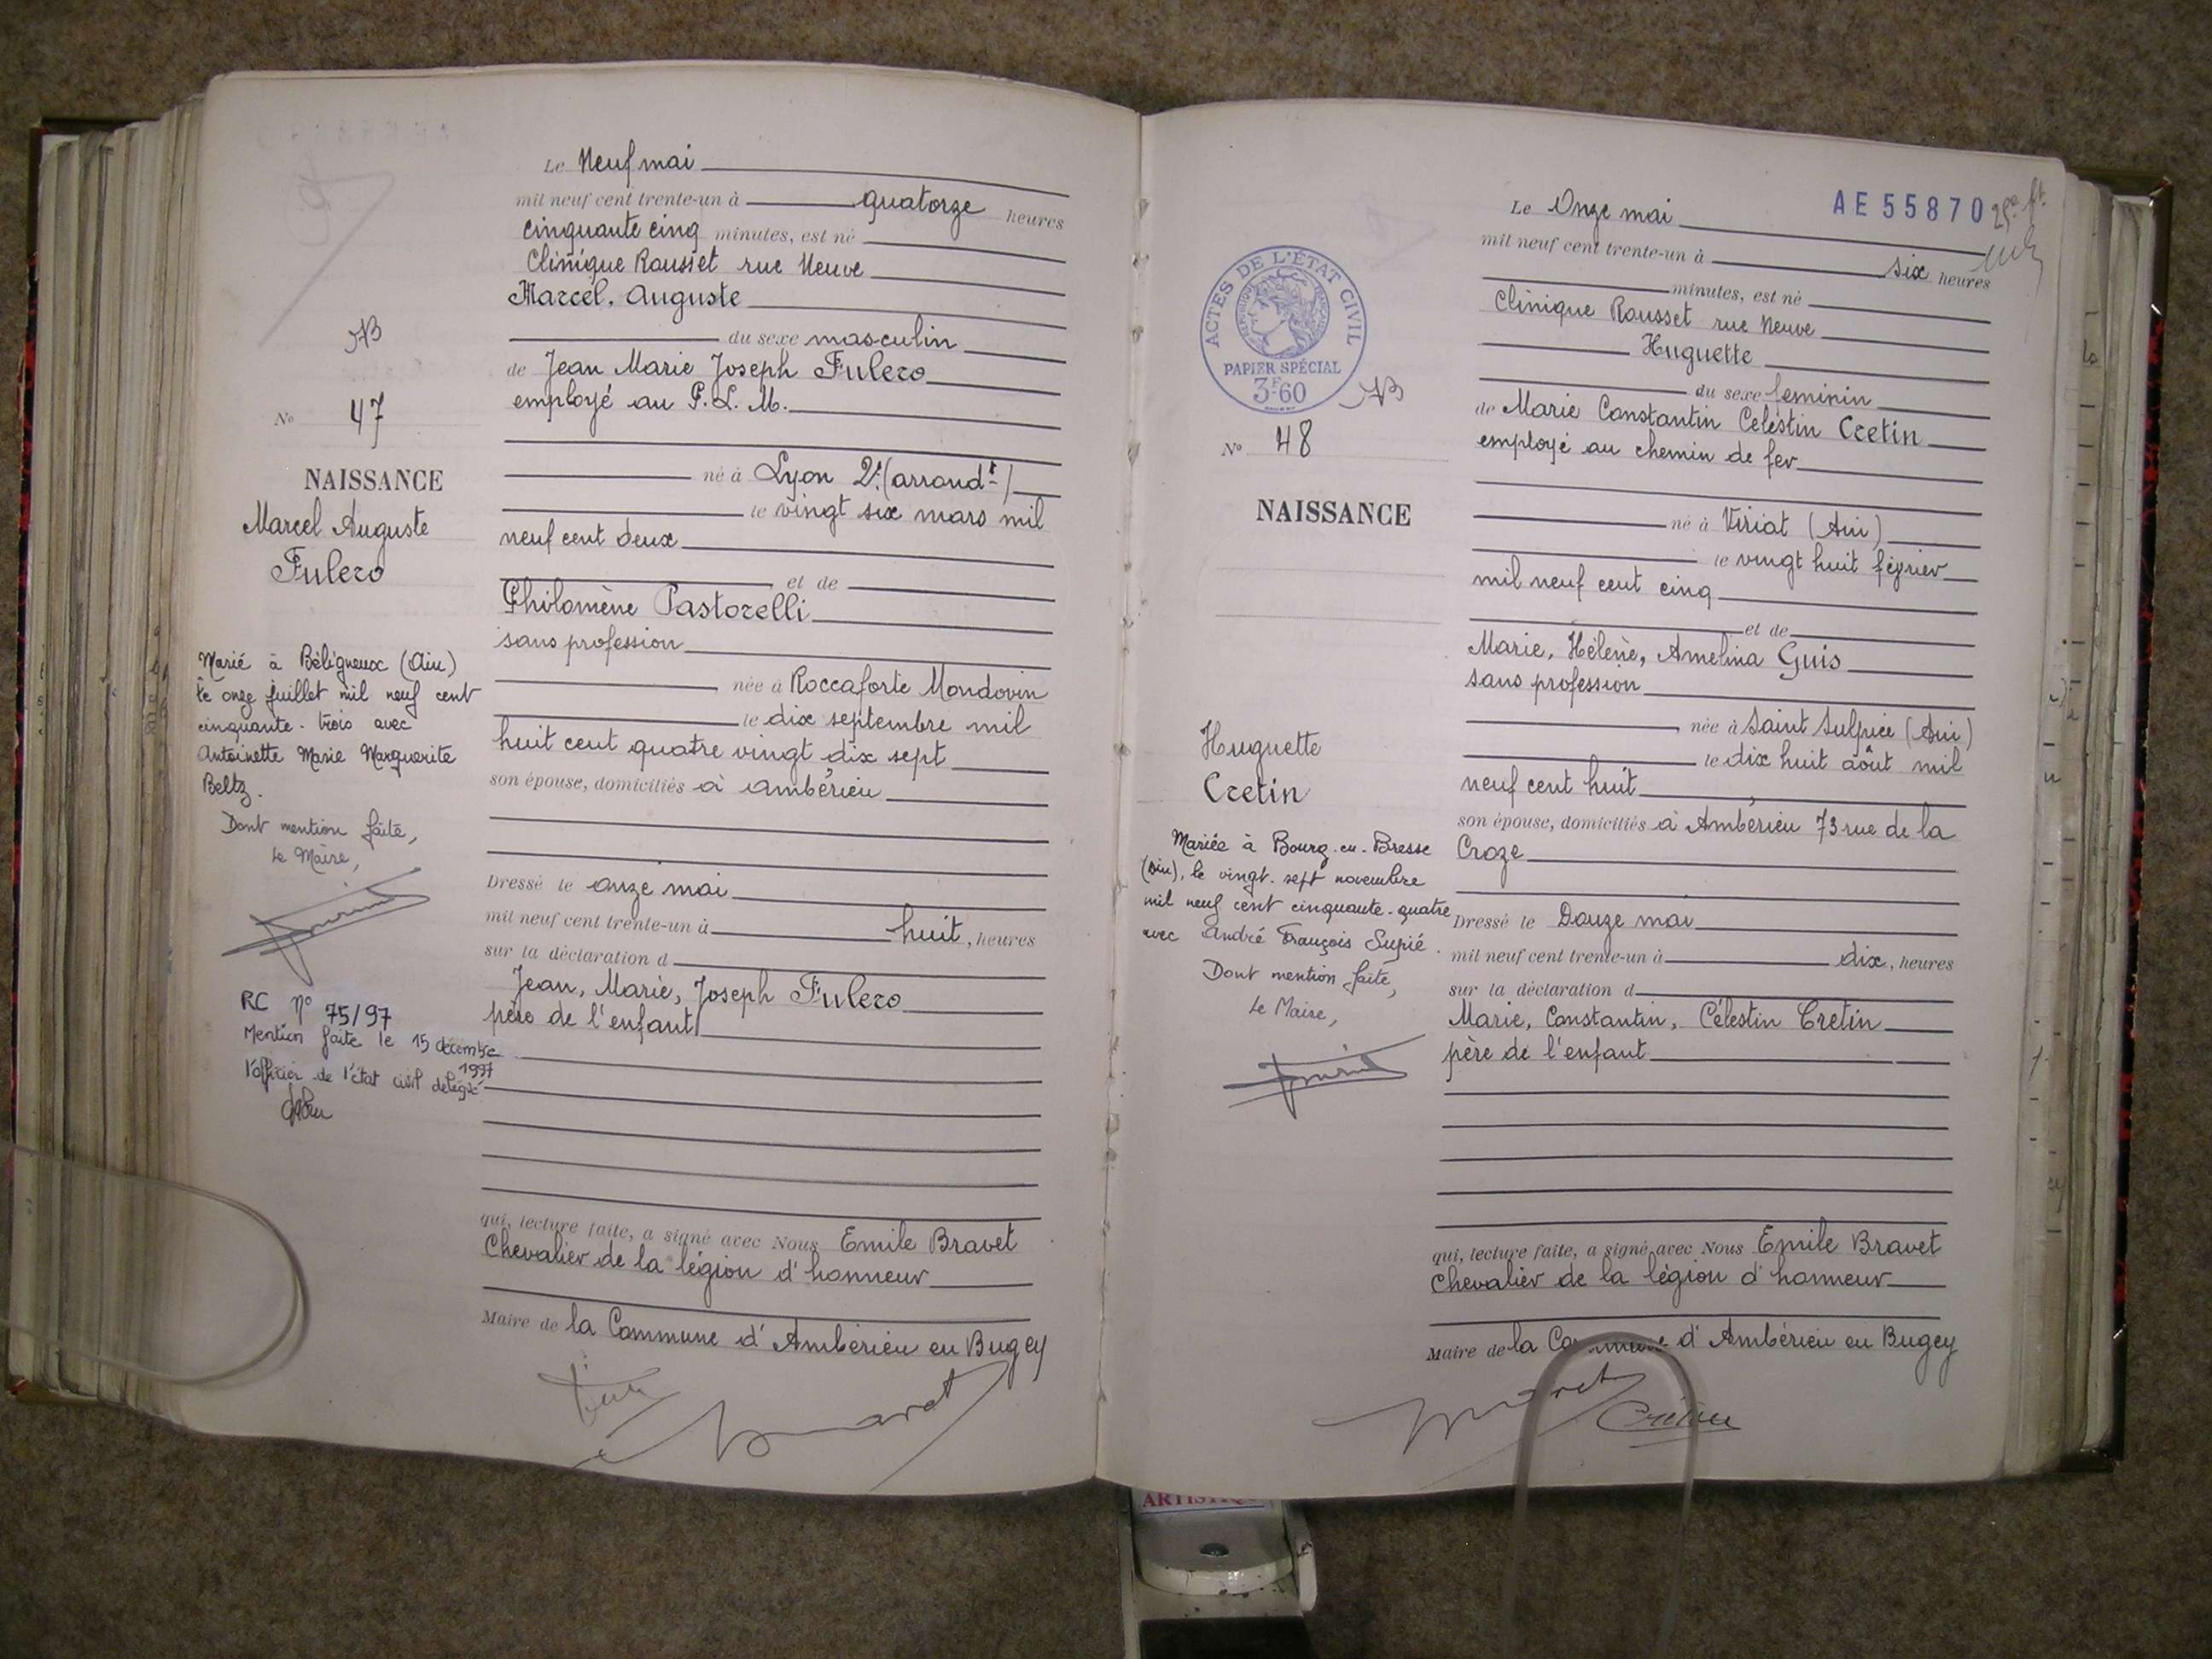 JB
N° 47
NAISSANCE
Marcel Auguste
Fulero
Marié à Béligneux (Ain)
le onze juillet mil neuf cent
cinquante-trois avec
Antoinette Marie Marguerite
Beltz.
Dont mention faite,
Le Maire,
RC N° 75/97
Mention faite le 15 décembre
1997
l'officier de l'état civil délégué
Le Neuf mai
mil neuf cent trente-un à quatorze heures
cinquante cinq minutes, est né
Clinique Rousset rue Neuve
Marcel, Auguste
du sexe masculin
de Jean Marie Joseph Fulero
employé au P.L.M.
né à Lyon 2e (arrondt)
le vingt six mars mil
neuf cent deux
et de
Philomène Pastorelli
sans profession
née à Roccaforte Mondovin
le dix septembre mil
huit cent quatre vingt dix sept
son épouse, domiciliés à Ambérieu
Dressé le onze mai
mil neuf cent trente-un à huit, heures
sur la déclaration d
Jean, Marie, Joseph Fulero
père de l'enfant
qui, lecture faite, a signé avec Nous Emile Bravet
Chevalier de la légion d'honneur
Maire de la Commune d'Ambérieu en Bugey
Bravet
ACTES DE L'ÉTAT CIVIL
RÉPUBLIQUE FRANÇAISE
PAPIER SPÉCIAL
3F60
JB
N° 48
NAISSANCE
Huguette
Cretin
Mariée à Bourg-en-Bresse
(Ain), le vingt-sept novembre
mil neuf cent cinquante-quatre
avec André François Supié.
Dont mention faite,
Le Maire,
AE55870
Le Onze mai
mil neuf cent trente-un à six heures
minutes, est né
Clinique Rousset rue Neuve
Huguette
du sexe feminin
de Marie Constantin Celéstin Cretin
employé au chemin de fer
né à Viriat (Ain)
le vingt huit février
mil neuf cent cinq
et de
Marie, Hélène, Amelina Guis
sans profession
née à Saint Sulpice (Ain)
le dix huit août mil
neuf cent huit
son épouse, domiciliés à Ambérieu 73 rue de la
Croze
Dressé le Douze mai
mil neuf cent trente-un à dix, heures
sur la déclaration d
Marie, Constantin, Célestin Cretin
père de l'enfant
qui, lecture faite, a signé avec Nous Emile Bravet
Chevalier de la légion d'honneur
Maire de la Commune d'Ambérieu en Bugey
Bravet
Cretin
ARTISTIQUE